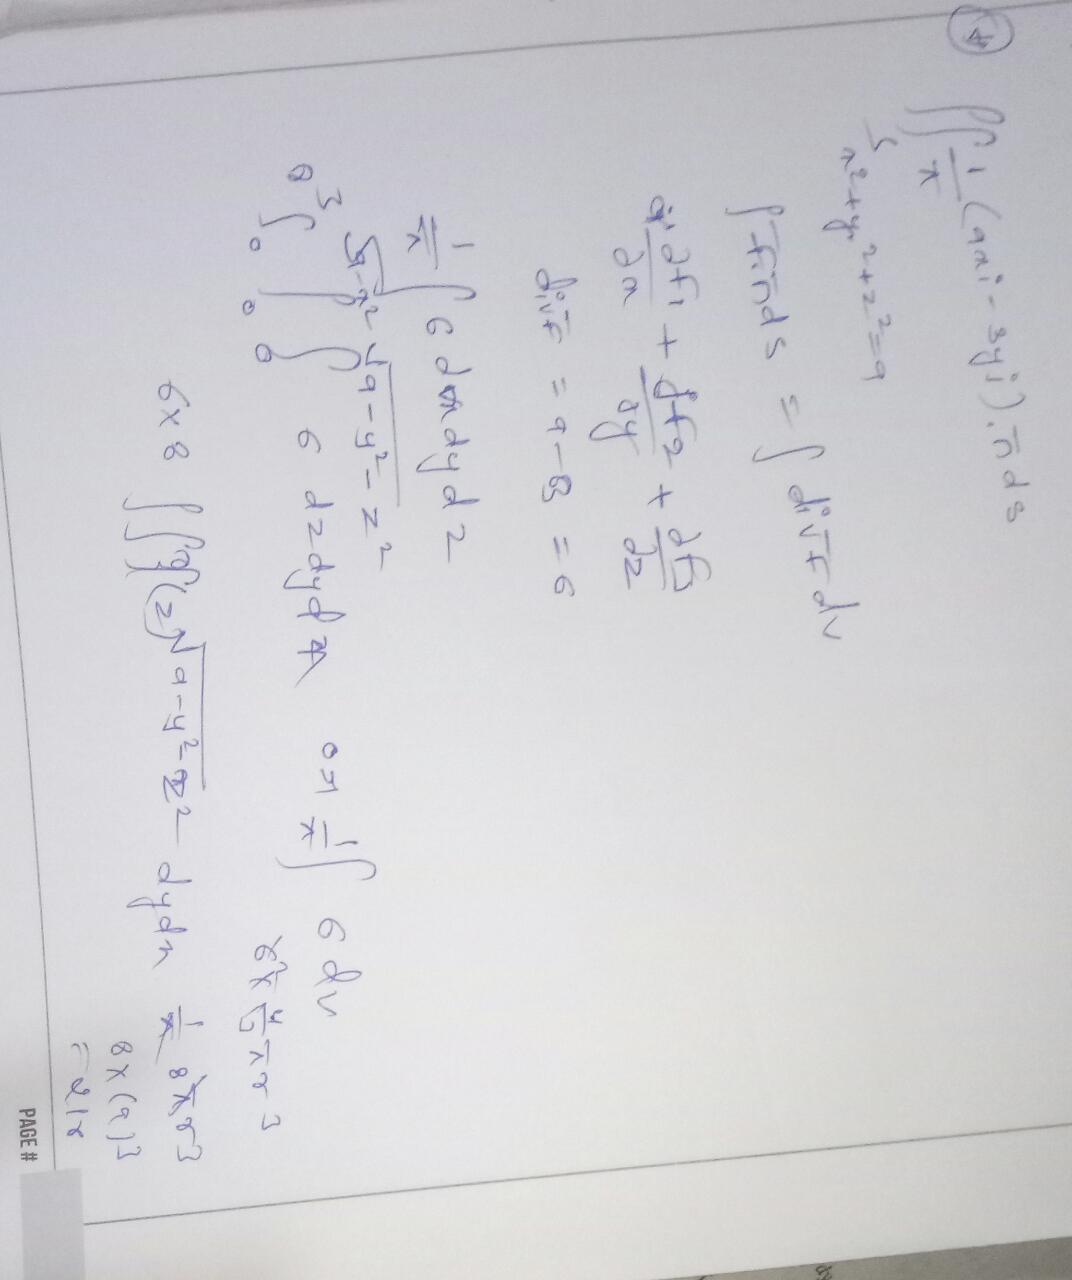 ④ ∬ 1/π (9xi - 3yj).n̄ ds
S
x²+y²+z²=9
∫ F̄.n̄ds = ∫ div F̄ dv
∂f1/∂x + ∂f2/∂y + ∂f3/∂z
div F̄ = 9-3 = 6
1/π ∫ 6 dxdydz
8 ∫₀³ ∫₀^√9-x² ∫₀^√9-y²-z² 6 dzdydx or 1/π ∫ 6 dv
6 x 4/3 π r³
6x8 ∫∫ (z)√9-y²-z² dydx 1/π 8π r³
8x(9)3
= 218
PAGE #